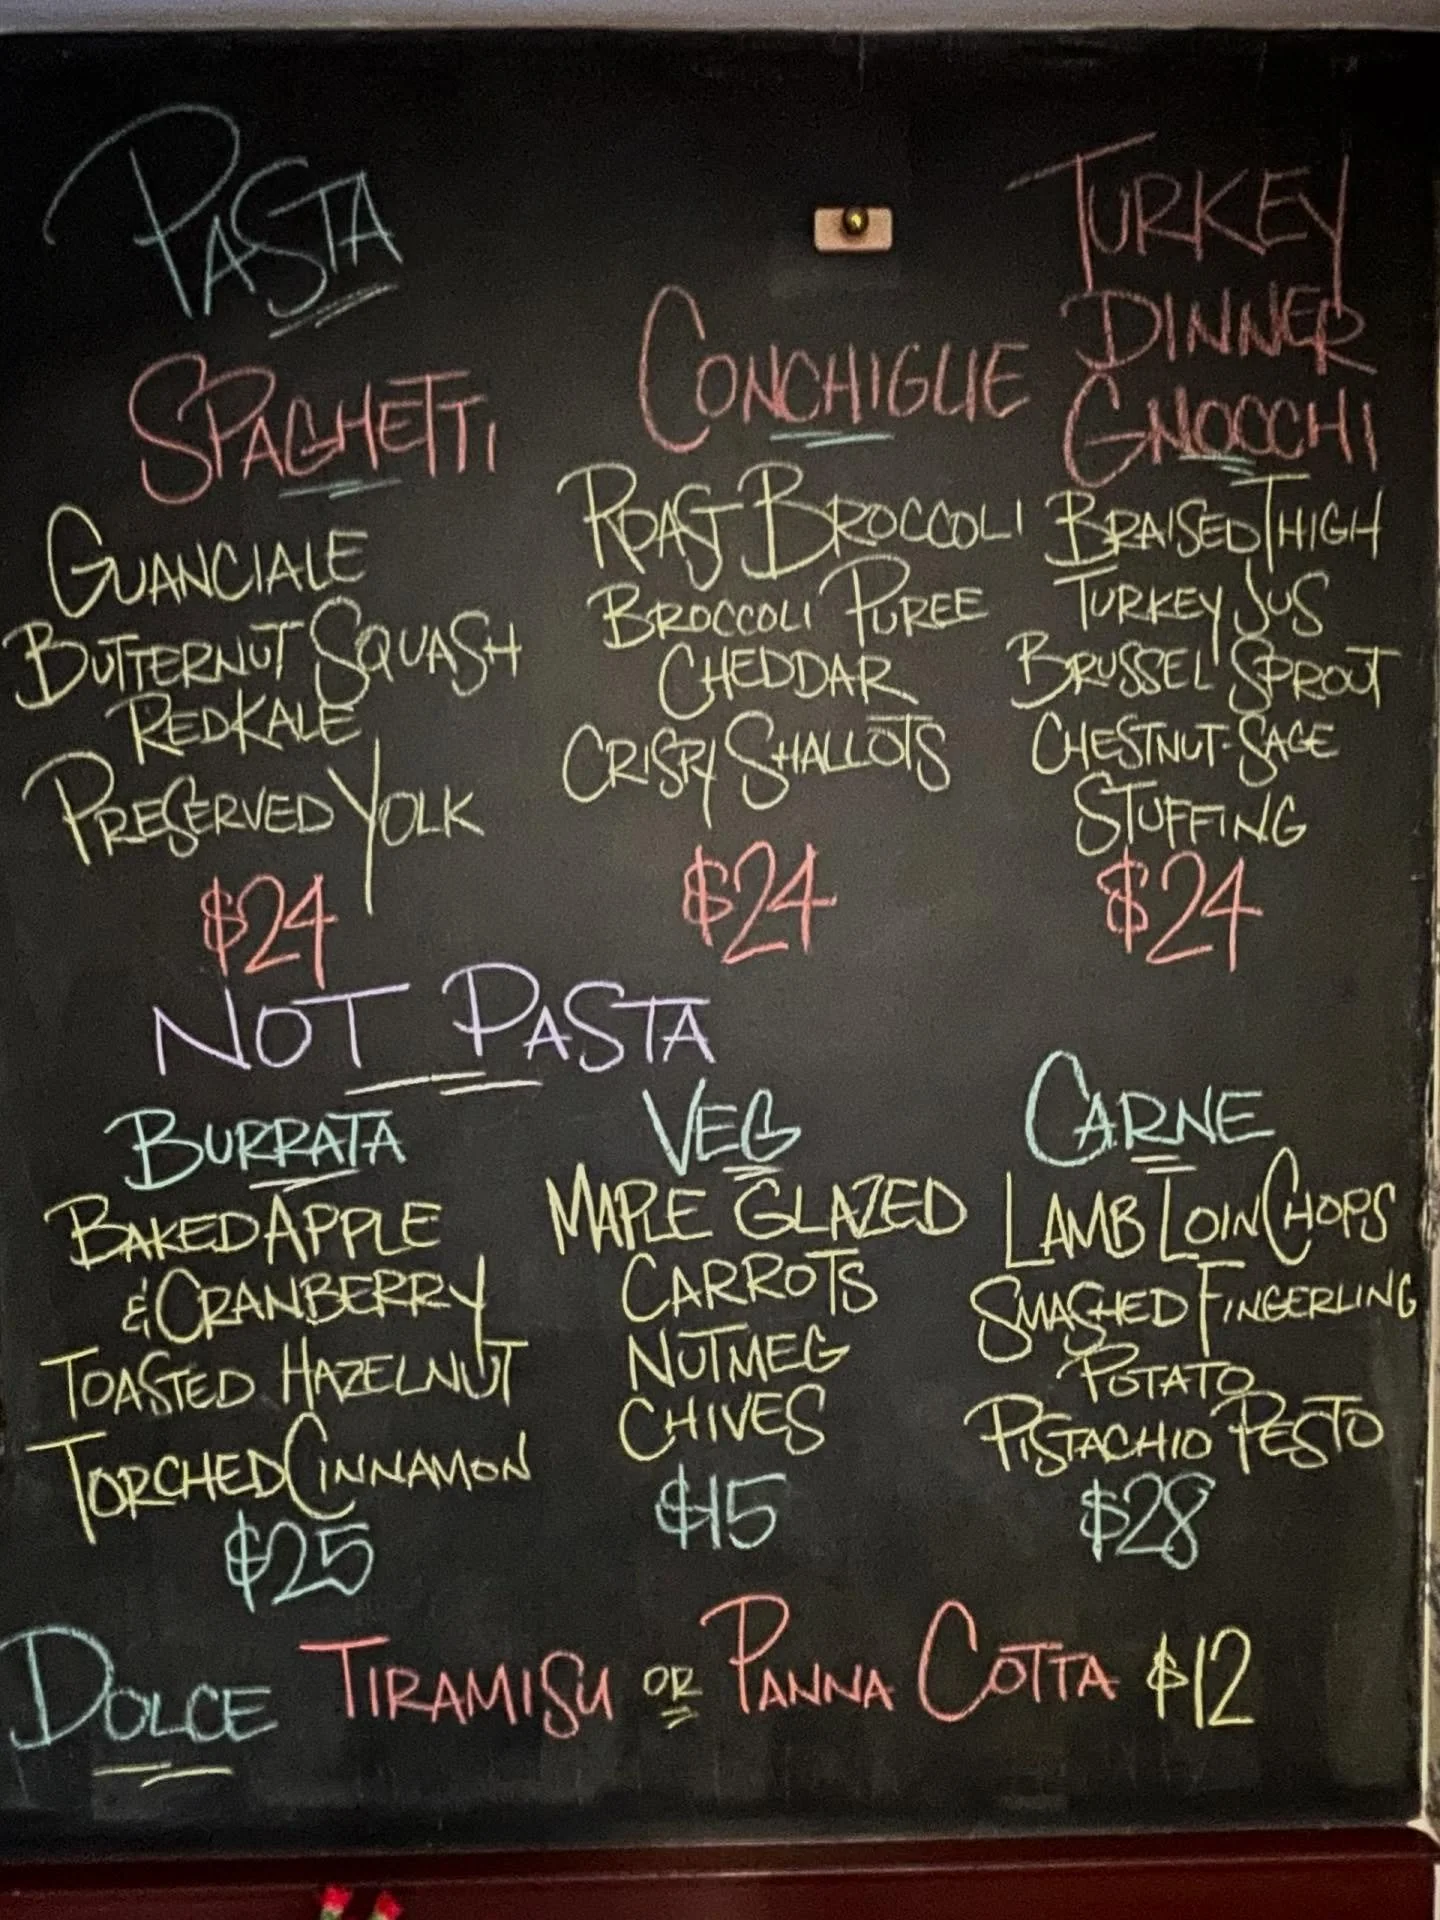 PASTA
SPAGHETTI
GUANCIALE
BUTTERNUT SQUASH
RED KALE
PRESERVED YOLK
$24
CONCHIGLIE
ROAST BROCCOLI
BROCCOLI PUREE
CHEDDAR
CRISPY SHALLOTS
$24
TURKEY
DINNER
GNOCCHI
BRAISED THIGH
TURKEY JUS
BRUSSEL SPROUT
CHESTNUT-SAGE
STUFFING
$24
NOT PASTA
BURRATA
BAKED APPLE
& CRANBERRY
TOASTED HAZELNUT
TORCHED CINNAMON
$25
VEG
MAPLE GLAZED
CARROTS
NUTMEG
CHIVES
$15
CARNE
LAMB LOIN CHOPS
SMASHED FINGERLING
POTATO
PISTACHIO PESTO
$28
DOLCE TIRAMISU OR PANNA COTTA $12